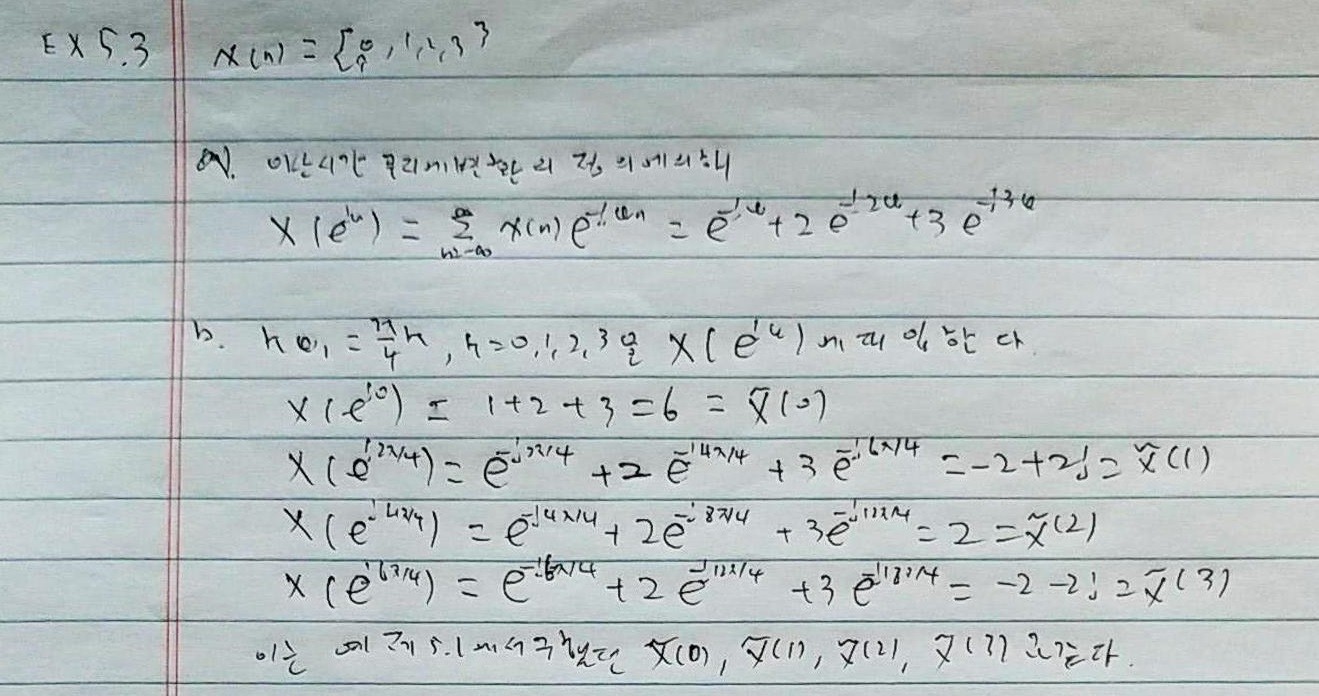 EX 5.3 x(n) = {0, 1, 2, 3}
↑
a. 이산시간 푸리에변환의 정의에의해
X(e^{jω}) = Σ_{n=-∞}^{∞} x(n) e^{-jωn} = e^{-jω} + 2e^{-j2ω} + 3e^{-j3ω}
b. kω₁ = \frac{2π}{4}k, k=0,1,2,3을 X(e^{jω})에 대입한다
X(e^{j0}) = 1+2+3 = 6 = X̃(0)
X(e^{j2π/4}) = e^{-j2π/4} + 2e^{-j4π/4} + 3e^{-j6π/4} = -2+2j = X̃(1)
X(e^{j4π/4}) = e^{-j4π/4} + 2e^{-j8π/4} + 3e^{-j12π/4} = 2 = X̃(2)
X(e^{j6π/4}) = e^{-j6π/4} + 2e^{-j12π/4} + 3e^{-j18π/4} = -2-2j = X̃(3)
이는 예제 5.1에서 구했던 X̃(0), X̃(1), X̃(2), X̃(3)과 같다.